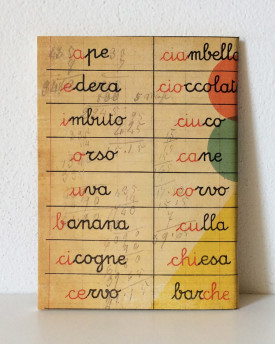 ape ciambella
edera cioccolat
imbuto ciuco
orso cane
uva corvo
banana culla
cicogne chiesa
cervo barche